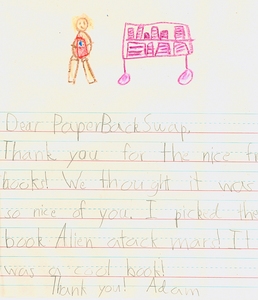 Dear PaperBackSwap,
Thank you for the nice fr
books! We thought it was
so nice of you. I picked the
book Alien atack mars! It
was a cool book!
Thank you! Adam